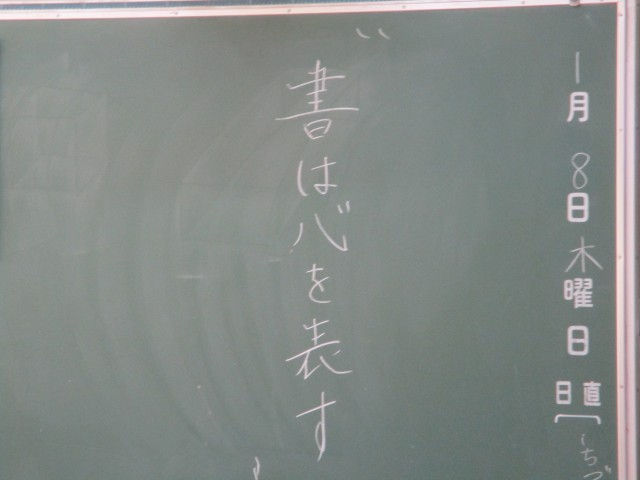 1月8日木曜日
日直
"書は心を表す